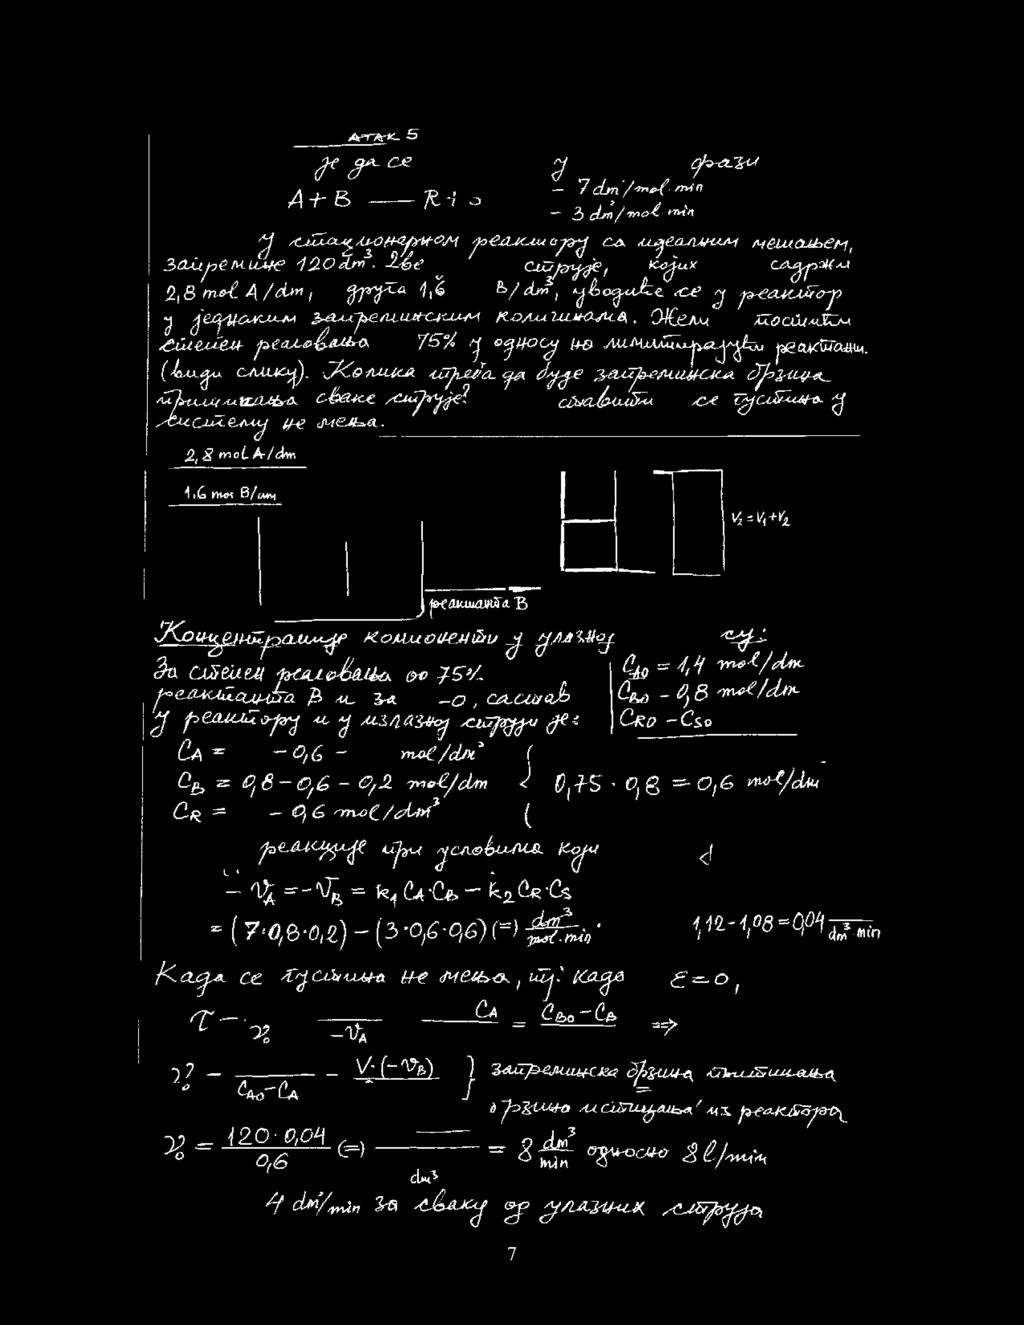 АТАК 5
је да се у фази
A + B — R + S
- 7 dm³/mol·min
- 3 dm³/mol min
у стационарном реактору са идеалним мешањем,
запремине 120 dm³. Две струје, којих садржи
2,8 mol A/dm, друга 1,6 B/dm³, уводиће се у реактор
у једнаким запреминским количинама. Жели постићи
степен реаговања 75% у односу на лимитирајући реактант.
(види слику). Колика треба да буде запреминска брзина
притицања сваке струје? ставити се густина у
систему не мења.
2,8 mol A/dm
1,6 mol B/dm
V₂ = V₁ + V₂
реактанта B
Концентрације компоненти у улазној су:
За степен реаговања од 75%
реактанта B и за -0, састав
у реактору и у излазној струји је:
C_A0 = 1,4 mol/dm
C_B0 - 0,8 mol/dm
C_R0 - C_S0
C_A = - 0,6 - mol/dm³
C_B = 0,8 - 0,6 - 0,2 mol/dm
0,75 · 0,8 = 0,6 mol/dm
C_R = - 0,6 mol/dm³
реакције при условима који
- V_A = - V_B = k₁ C_A·C_B - k₂ C_R·C_S
= (7·0,8·0,2) - (3·0,6·0,6) (=) dm³/mol·min · 1,12 - 1,08 = 0,04 /dm³·min
Када се густина не мења, тј. када ε = 0,
τ - V₀ -V_A C_A = C_B0 - C_B =>
V₀ - C_A0 - C_A - V·(-V_B) } запреминска брзина притицања
= брзина истицања из реактора
V₀ = 120·0,04/0,6 (=) dm³ = 8 dm³/min односно 8 l/min
4 dm³/min за сваку од улазних струја
7